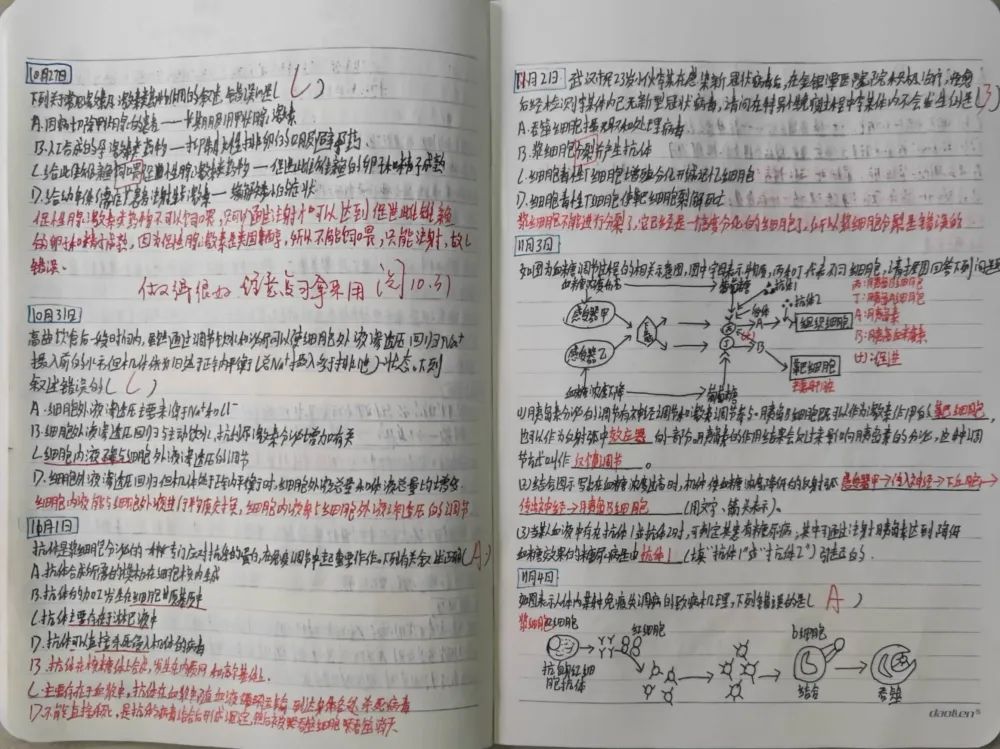 10月27日
下列关于常见激素及激素类药物作用的叙述,错误的是( C
A.因病切除甲状腺的患者——长期服用甲状腺激素
B.人工合成的孕激素类药物——抑制女性排卵的口服避孕药
C.给此雌雄亲鱼饲喂促性腺激素类药物——促进此雌雄亲鱼的卵和精子成熟
D.给幼年体 患者注射生长激素——缓解矮小症状
促性腺激素类药物不可以饲喂,只可以通过注射才可以达到促进此雌雄亲鱼
的卵和精子成熟,因为促性腺激素是类固醇,所以不能饲喂,只能注射,故C
错误。
做得很好 10.31
10月31日
高盐饮食后一段时间内,虽然通过调节 可以使细胞外液渗透压回归Na+
摄入前的水平,但机体依旧处于正钠平衡(即Na+摄入多于排出)状态。下列
叙述错误的( C
A.细胞外液渗透压主要来源于Na+和Cl-
B.细胞外液渗透压回归与主动饮水、抗利尿激素分泌增加有关
C.细胞内液不参与细胞外液渗透压的调节
D.细胞外液渗透压回归但机体处于正钠平衡时,细胞外液总量和体液总量均增多
细胞内液能与细胞外液进行物质交换,细胞内液参与细胞外液渗透压的调节
11月1日
抗体是浆细胞分泌的一种专门应对抗原的蛋白,在免疫调节中起重要作用。下列有关叙述正确( A )
A.抗体合成所需的模板在细胞核内生成
B.抗体的加工发生在细胞质基质中
C.抗体主要存在于淋巴液中
D.抗体可以直接杀死侵入机体的病毒
B.抗体在核糖体上合成,发生在内质网和高尔基体上
C.主要存在于血浆中,抗体在血浆中随血液循环 到达身体各处杀死病毒
D.不能直接 ,是抗体与病毒结合后形成沉淀,然后被吞噬细胞吞噬消灭
11月2日 武汉市民23岁小伙李某在感染新冠状病毒后,在金银潭医院院积极治疗,痊愈
后经检测李某体内已无新型冠状病毒,请问在特异性免疫过程中李某体内不会发生的是( B )
A.吞噬细胞摄取和处理病毒
B.浆细胞分裂并产生抗体
C.细胞毒性T细胞增殖分化形成记忆细胞
D.细胞毒性T细胞使靶细胞裂解死亡
浆细胞不能进行分裂了,它已经是一个高等分化的细胞了,所以浆细胞分裂是错误的
11月3日
如图为血糖调节过程的相关示意图,图中字母表示物质,丙和丁代表不同细胞,请据图回答下列问题
血糖浓度升高
葡萄糖
抗体1
丙:胰岛B细胞
感受器甲
抗体2
丁:胰岛A细胞
组织细胞
A:胰岛素
B:胰高血糖素
感受器乙
(+):促进
靶细胞
主要是肝脏
血糖浓度下降
葡萄糖
(1)胰岛素分泌的调节有神经调节和激素调节参与,胰岛B细胞既可以作为激素作用的靶细胞,
也可以作为反射弧中效应器的一部分,胰岛素的作用结果会反过来影响胰岛素的分泌,这种调
节方式叫作 反馈调节 。
(2)结合图示写出在血糖浓度过高时,机体使血糖浓度降低的反射弧 感受器甲→传入神经→下丘脑→
传出神经→胰岛B细胞 (用文字、箭头表示)。
(3)当某人血液中存在抗体1或抗体2时,可判定其患有糖尿病,其中可通过注射胰岛素达到降低
血糖效果的糖尿病是由 抗体1 (填“抗体1”或“抗体2”)引起的。
11月4日
如图表示人体内某种免疫失调病的致病机理,下列错误的是( A )
浆细胞
红细胞
b细胞
抗血红细
胞抗体
结合
吞噬
daolien